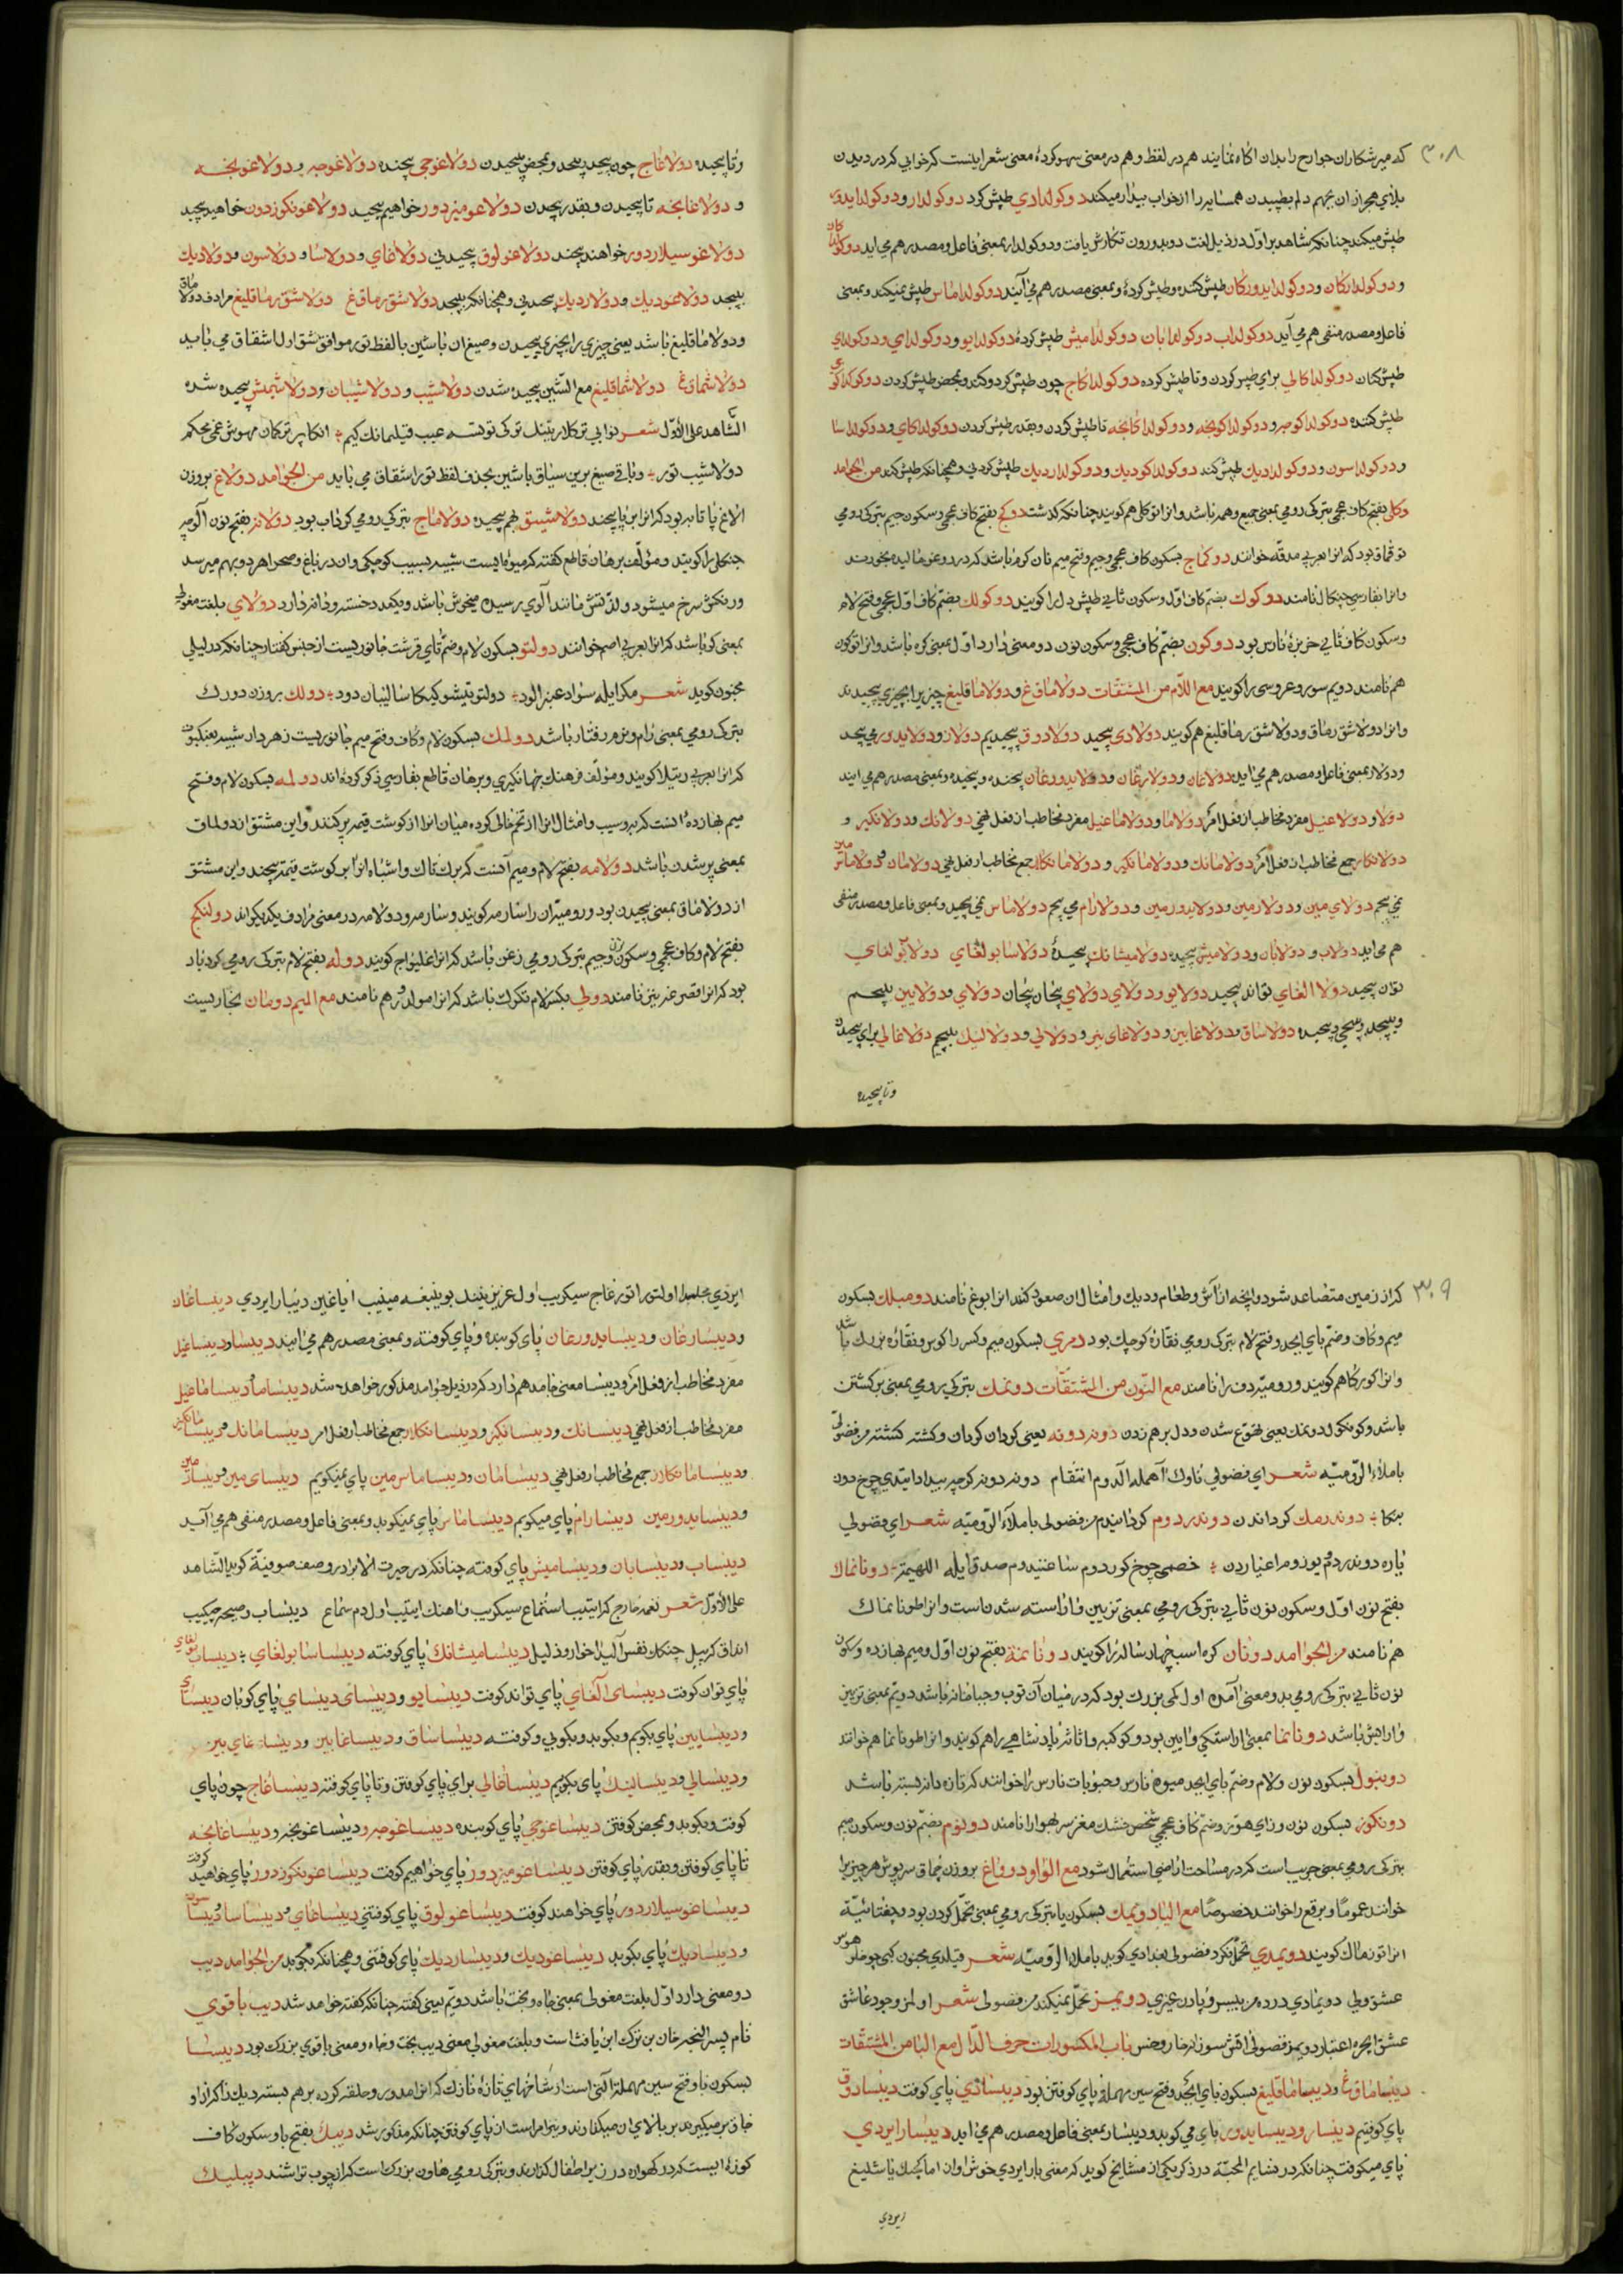 ۳۰۸
که میر شکاران جوارح را بدان اکاه نمایند هم در لفظ و هم در معنی سهو کرده معنی شعر اینست که خوابی کردر دیدن
بلای هجر از ان بهم دلم بطپیدن همسایه را از خواب بیدار میکند دوکولدادی طپش کرد دوکولدار و دوکولدایدور
طپش میکند چنانکه شاهد بر اول در ذیل لغت دوبدورون نکارش یافت و دوکولدار بمعنی فاعل و مصدر هم می اید
و دوکولدارکان و دوکولدایدورکان طپش کننده و طپش کرده و بمعنی مصدر هم می آیند دوکولداماس طپش نمیکند و بمعنی
فاعل و مصدر منفی هم می آید دوکولداب دوکولدابان دوکولدامیش طپش کرده دوکولدایو و دوکولدای و دوکولدای
طپش کنان دوکولداکالی برای طپش کردن و تا طپش کرده دوکولداکاج چون طپش کرد و کند و بمحض طپش کردن
طپش کننده دوکولداکوجه و دوکولداکونجه و دوکولداکانجه تا طپش کردن و بقدر طپش کردن دوکولداکای و دوکولداسا
و دوکولداسون و دوکولدادیك طپش کند دوکولداکودیك و دوکولداردیك طپش کردنی و همچنانکه طپش کند من الجوامد
دکلی بفتح کاف عجمی بترکی رومی بمعنی جمیع و همه باشد و انرا توکلی هم کویند چنانکه کذشت دوکج بفتح کاف عجمی و سکون جیم بترکی رومی
توقماق بود که انرا بعربی مدقه خوانند دوکماج بسکون کاف عجمی و جیم و فتح میم نان کوماج باشد که در روغن مالیده میخورند
وانرا بفارسی چنکال نامند دوکوك بضم کاف اول و سکون ثانی طپش دل را کویند دوکولك بضم کاف اول عجمی و فتح لام
و سکون کاف ثانی خربزه نارس بود دوکون بضم کاف عجمی و سکون نون دو معنی دارد اول بمعنی کره باشد و انرا توکون
هم نامند دویم سور و عروسی را کویند مع اللام من المشتقات دولاماق غ و دولاماقلیغ چیزیرا بچیزی پیچیدند
وانرا دولاشقرماق و دولاشقرماقلیغ هم کویند دولادی پیچید دولادوق پیچیدیم دولار و دولایدور می پیچد
و دولار بمعنی فاعل و مصدر هم می اید دولاغان و دولارغان و دولایدورغان پیچنده و پیچیده و بمعنی مصدر هم می ایند
دولا و دولاغیل مفرد مخاطب از فعل امر دولاما و دولاماغیل مفرد مخاطب از فعل نهی دولانك و دولانکیز و
دولانکلار جمع مخاطب از فعل امر دولامانك و دولامانکیز و دولامانکلار جمع مخاطب از فعل نهی دولامان و دولاماس مین
نمی پیچم دولای مین و دولارمین و دولایدورمین و دولارام می پیچم دولاماس نمی پیچد و بمعنی فاعل و مصدر منفی
هم می اید دولاب و دولابان و دولامیش پیچیده دولامیشانك پیچیده دولاسا بولغای دولاب بولغای
توان پیچید دولا الغای تواند پیچید دولایور دولای دولای پیچان پیچان دولای و دولایین بپیچم
و بپیچد و پیچی و پیچیده دولاساق و دولاغابین و دولاغای بیز و دولالی و دولالینك بپیچیم دولاغالی برای پیچیدن
و تا پیچیده
و تا پیچیده دولاغاج چون پیچید و پیچد و بمحض پیچیدن دولاغوجی پیچنده دولاغوجه و دولاغونجه
و دولاغانجه تا پیچیدن و بقدر پیچیدن دولاغومیزدور خواهیم پیچید دولاغونکوزدور خواهید پیچید
دولاغوسیلاردور خواهند پیچید دولاغولوق پیچیدنی دولاغای و دولاسا و دولاسون و دولادیك
بپیچد دولاغودیك و دولاردیك پیچیدنی و همچنانکه بپیچد دولاشقرماق غ دولاشقرماقلیغ مرادف دولاماق
و دولاماقلیغ باشد یعنی چیزی را بچیزی پیچیدن و صیغ ان باشین بالفظ تور موافق شق اول اشتقاق می یابد
دولاشماق غ دولاشماقلیغ مع الشین پیچیده شدن دولاشیب و دولاشیبان و دولاشمش پیچیده شده
الشاهد علی الاول شعر نوایی ترکلار بتیك ترکی توشسه عیب قیلمانك کیم انکا بر ترکمان مهوش غمی محکم
دولاشیب تور و باقی صیغ برین سیاق باشین بحذف لفظ تور اشتقاق می یابد من الجوامد دولاغ بروزن
الاغ پا تابه بود که انرا بر پا پیچند دولاشیق بهم پیچیده دولاماج بترکی رومی کرداب بود دولانه بفتح نون آلوچه
جنکلی را کویند و مؤلف برهان قاطع کفته که میوه ایست شبیه بسیب کوچکی و ان در باغ و صحرا هر دو بهم میرسد
و رنکش سرخ میشود و لذتش مانند آلوی رسیده میخوش باشد و یکعدد خسته و دانه دارد دولای بلغت مغولی
بمعنی کر باشد که انرا بعربی اصم خوانند دولتو بسکون لام و ضم تای قرشت جانوریست از جنس کفتار چنانکه در لیلی
مجنون کوید شعر مکر ایله سواد عنبرالود دولتو تیشو کیکا سالیبان دود دولك بروزن دورك
بترکی رومی بمعنی رام و نرم رفتار باشد دولمك بسکون لام و کاف و فتح میم جانوریست زهردار شبیه بعنکبوت
که انرا بعربی رتیلا کویند و مؤلف فرهنك جهانکیری و برهان قاطع بفارسی ذکر کرده اند دولمه بسکون لام و فتح
میم بهازده آنست که به و سیب و امثال انرا از تخم خالی کرده میان انرا از کوشت قیمه پر کنند و این مشتق از دولماق
بمعنی پر شدن باشد دولامه بفتح لام و میم آنست که برك تاك و اشباه انرا بر کوشت قیمه پیچند و این مشتق
از دولاماق بمعنی پیچیدن بود و رومیان را سارمه کویند و سارمه و دولامه در معنی مرادف یکدیکراند دولنکج
بفتح لام و کاف عجمی و سکون نون و جیم بترکی رومی زغن باشد که انرا غلیواج کویند دوله بفتح لام بترکی رومی کردباد
بود که انرا قصرغه نیز نامند دولی بکسر لام تکرك باشد که انرا مولدور هم نامند مع المیم دومان بخاریست
۳۰۹
که از زمین متصاعد شود و انچه از آش و طعام و دیك و امثال ان صعود کند انرا بوغ نامند دومبلك بسکون
میم و کاف و ضم بای ابجد و فتح لام بترکی رومی نقاره کوچك بود دمری بسکون میم و کسر را کوس و نقاره بزرك باشد
وانرا کورکا هم کویند و رومیه دف را نامند مع النون من المشتقات دونمك بترکی رومی بمعنی برکشتن
باشد و کونکول دونمك یعنی تهوع شدن و دل برهم زدن دونه دونه یعنی کردان کردان و کشته کشته مر فضولی
باملاء الرومیه شعر ای فضولی ناوك آهمله آلدوم انتقام دونه دونه کرچه بیداد ایتدی چرخ دون
بنکا دوندرمك کرداندن دوندردوم کردانیدم مر فضولی باملاء الرومیه شعر ای فضولی
یاره دوندردوم یوزوم اغیاردن خصمی چوخ کوردوم ساغنیدوم صدقایله اللهیمه دونانماك
بفتح نون اول و سکون نون ثانی بترکی رومی بمعنی تزیین و اراسته شدن است و انرا طونانماك
هم نامند من الجوامد دونان کره اسب چهار ساله را کویند دونانمه بفتح نون اول و میم بهازده و سکون
نون ثانی بترکی رومی بدو معنی آمده اول کمی بزرك بود که در میان آن توب و جباخانه باشد دویم بمعنی تزیین
و ارایش باشد دونانما بمعنی اراستکی و ایین بود و کوکبه و اثاثه پادشاهی را هم کویند و انرا طونانما هم خوانند
دونبول بسکون نون و لام و ضم بای ابجد میوه نارس و حبوبات نارس را خوانند که تازه دانه بسته باشد
دونکوز بسکون نون و زای هوز و ضم کاف عجمی شخص خشك مغز سر بهوا را نامند دونوم بضم نون و سکون میم
بترکی رومی بمعنی جریب است که در مساحت اراضی استعمال شود مع الواو دوواغ بروزن چماق سرپوش هر چیز را
خوانند عموما و برقع را خوانند خصوصا مع الیا دویمك بسکون یا بترکی رومی بمعنی تحمل کردن بود و چغتائیه
انرا تونماك کویند دویمدی تحمل نکرد فضولی بغدادی کوید باملاء الرومیه شعر قیلدی مجنون کبی چوخلر هوس
عشق ولی دویمادی درده من بیسر و پادن غیری دویمز تحمل نمیکند مر فضولی شعر اولمز وجود عاشق
عشق ایچره اعتبار دویمز فضولی اقش سوزانه خار و خس باب المکسورات حرف الدال مع البا من المشتقات
دیبساماق غ و دیبساماقلیغ بسکون بای ابجد و فتح سین مهمله پای کوفتن بود دیبسادی پای کوفت دیبسادوق
پای کوفتیم دیبسار و دیبسایدور پای می کوبد و دیبسار بمعنی فاعل و مصدر هم می اید دیبسار ایردی
پای میکوفت چنانکه در نسایم المحبه در ذکر یکی از مشایخ کوید که مغنی بار ایردی خوش اوان اما کیجیك یاشلیغ
ایردی
ایردی مجلسدا اولتوراتورغاج سیکریب اول عزیز نینك بوینیغه مینیب ایاغین دیبسار ایردی دیبساغان
و دیبسارغان و دیبسایدورغان پای کوبنده و پای کوفته و بمعنی مصدر هم می ایند دیبسا و دیبساغیل
مفرد مخاطب از فعل امر و دیبسا معنی جامد هم دارد که در ذیل جوامد مذکور خواهد شد دیبساما و دیبساماغیل
مفرد مخاطب از فعل نهی دیبسانك و دیبسانکیز و دیبسانکلار جمع مخاطب از فعل امر دیبسامانك و دیبسامانکیز
و دیبسامانکلار جمع مخاطب از فعل نهی دیبسامان و دیبساماس مین پای نمیکوبم دیبسای مین و دیبسارمین
و دیبسایدورمین دیبسارام پای میکوبم دیبساماس پای نمیکوبد و بمعنی فاعل و مصدر منفی هم می آید
دیبساب و دیبسابان و دیبسامیش پای کوفته چنانکه در حیرت الابرار در وصف صوفیه کوید الشاهد
علی الاول شعر نغمه خارج کر ایتیب استماع سیکریب و اهنك ایتیب اول دم سماع دیبساب و صیحه چیکیب
انداق کر بیل چنکان نفس آلیدا خوار و ذلیل دیبسامیشانك پای کوفته دیبساسا بولغای دیبساب بولغای
پای توان کوفت دیبسای آلغای پای تواند کوفت دیبسایو و دیبسای دیبسای پای کوبان دیبسای
و دیبسایین پای بکوبم و بکوبد و بکوبی و کوفته دیبساساق و دیبساغابین و دیبساغای بیز
و دیبسالی و دیبسالینك پای بکوبیم دیبساغالی برای پای کوفتن و تا پای کوفته دیبساغاج چون پای
کوفت و بکوبد و بمحض کوفتن دیبساغوجی پای کوبنده دیبساغوجه و دیبساغونجه و دیبساغانجه
تا پای کوفتن و بقدر پای کوفتن دیبساغومیزدور پای خواهیم کوفت دیبساغونکوزدور پای خواهید کوفت
دیبساغوسیلاردور پای خواهند کوفت دیبساغولوق پای کوفتنی دیبساغای و دیبساسا و دیبساسون
و دیبسادیك پای بکوبد دیبساغودیك و دیبساردیك پای کوفتنی و همچنانکه بکوبد من الجوامد دیب
دو معنی دارد اول بلغت مغولی بمعنی جاه و تخت باشد دویم یعنی کفته چنانکه کفته خواهد شد دیب باقوی
نام پسر النجه خان بن ترك ابن یافث است و بلغت مغولی معنی دیب تخت و جاه و معنی باقوی بزرك بود دیبسا
بسکون با و فتح سین مهمله التی است از شاخهای تازه نازك که انرا مدور و حلقه کرده برهم بسته دیك را کز از او
جاق بر میکیرند بر بالای ان میکذارند و نیز امر است از پای کوفتن چنانکه مذکور شد دیبك بفتح با و سکون کاف
کوزه ایست که در کهواره در زیر اطفال کذارند و بترکی رومی هاون بزرك است که از چوب تراشند دیبلیك